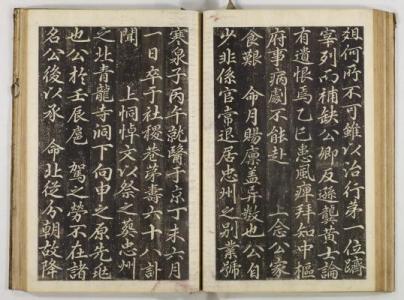 俎何所不可雖以治行第一位躋
宰列而補缺公卿反遜龔黃士論
有遺恨焉乙巳患風痺拜知中樞
府事病劇不能赴 上念公家
食艱 命月賜廪盖异數也公自
少非係官常退居忠州之別業號
寒泉子丙午就醫于京丁未六月
一日卒于社稷巷第壽六十八訃
聞 上恫悼文以祭之葬忠州
之北青龍寺洞下向申之原先兆
也公於壬辰扈 駕之勞不在諸
名公後以承 命北從分朝故降